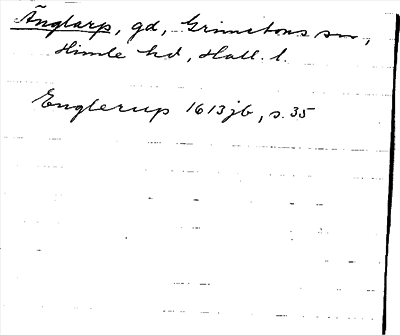 Änglarp, gd, Grimetons sn,
Himle hd, Hall. l.
Englerup 1613 jb, s. 35